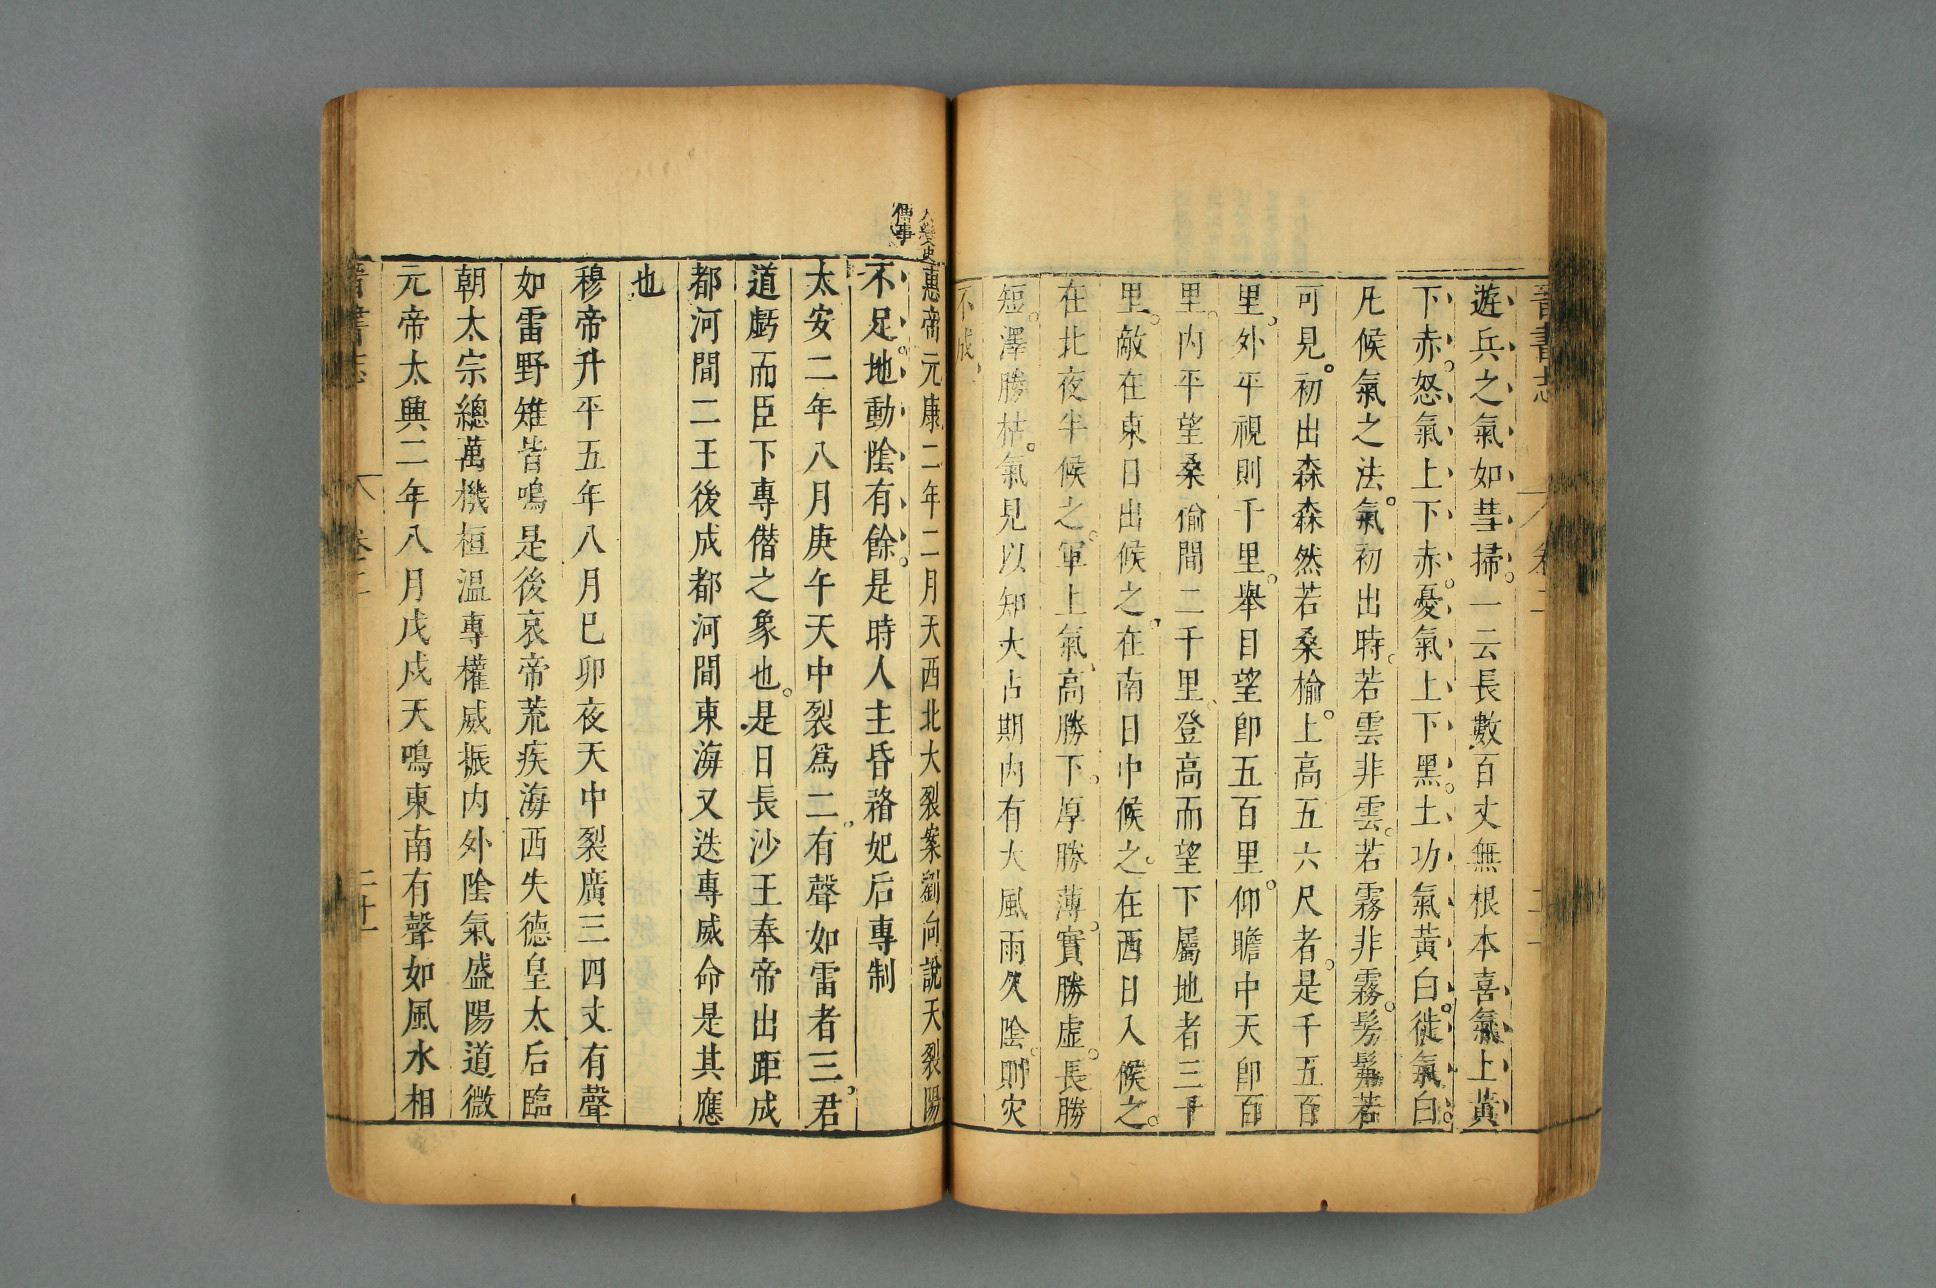 晉書志
卷二
遊兵之氣如彗掃一云長數百丈無根本喜氣上黃
下赤怒氣上下赤憂氣上下黑土功氣黃白徙氣白
凡候氣之法氣初出時若雲非雲若霧非霧髣髴若
可見初出森森然若桑榆上高五六尺者是千五百
里外平視則千里舉目望卽五百里仰瞻中天卽百
里內平望桑榆間二千里登高而望下屬地者三千
里敵在東日出候之在南日中候之在西日入候之
在北夜半候之軍上氣高勝下厚勝薄實勝虛長勝
短澤勝枯氣見以知大占期內有大風雨久陰則灾
不成
傳事
惠帝元康二年二月天西北大裂案劉向說天裂陽
不足地動陰有餘是時人主昏瞀妃后專制
太安二年八月庚午天中裂爲二有聲如雷者三君
道虧而臣下專僭之象也是日長沙王奉帝出距成
都河間二王後成都河間東海又迭專威命是其應
也
穆帝升平五年八月巳卯夜天中裂廣三四丈有聲
如雷野雉皆鳴是後哀帝荒疾海西失德皇太后臨
朝太宗總萬機桓溫專權威振內外陰氣盛陽道微
元帝太興二年八月戊戌天鳴東南有聲如風水相
晉書志
卷二